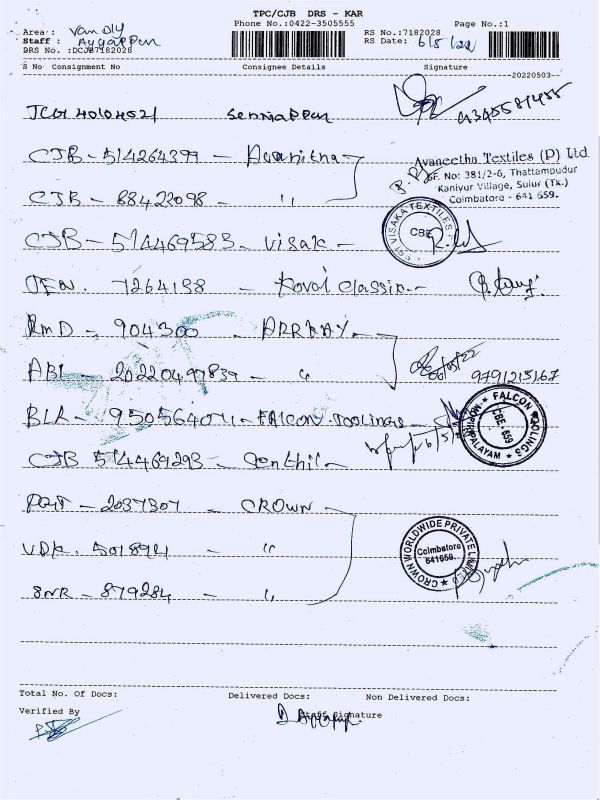 TPC/CJB DRS - KAR
Phone No.:0422-3505555
Page No.:1
Area : Van Dly
Staff : Ayyappan
DRS No. :DCJB7182028
RS No.:7182028
RS Date: 6/5/22
S No Consignment No Consignee Details Signature
20220503
JCGI 40104521 Sennappan 9345581455
CJB - 514264399 - Avanitha
CJB - 88422098 - "
Avaneetha Textiles (P) Ltd
SF. No: 381/2-6, Thattampudur
Kaniyur Village, Sulur (Tk.)
Coimbatore - 641 659.
CJB - 514469583 - Visak -
SRI VISAKA TEXTILES
CBE
7264138 - Kovai Classic -
RMD - 904300 - ARRKAY -
ABL - 20220497839 - "
06/05/22
9791215167
BLR - 950564071 - FALCON Toolings -
FALCON TOOLINGS
CBE-659
CJB 514469293 - Senthil -
6/5/
2037307 - CROWN -
VDK - 501894 - "
SNR - 879284 - "
CROWN WORLDWIDE PRIVATE LIMITED
Coimbatore
641659.
Total No. Of Docs:
Delivered Docs:
Non Delivered Docs:
Verified By
Staff Signature